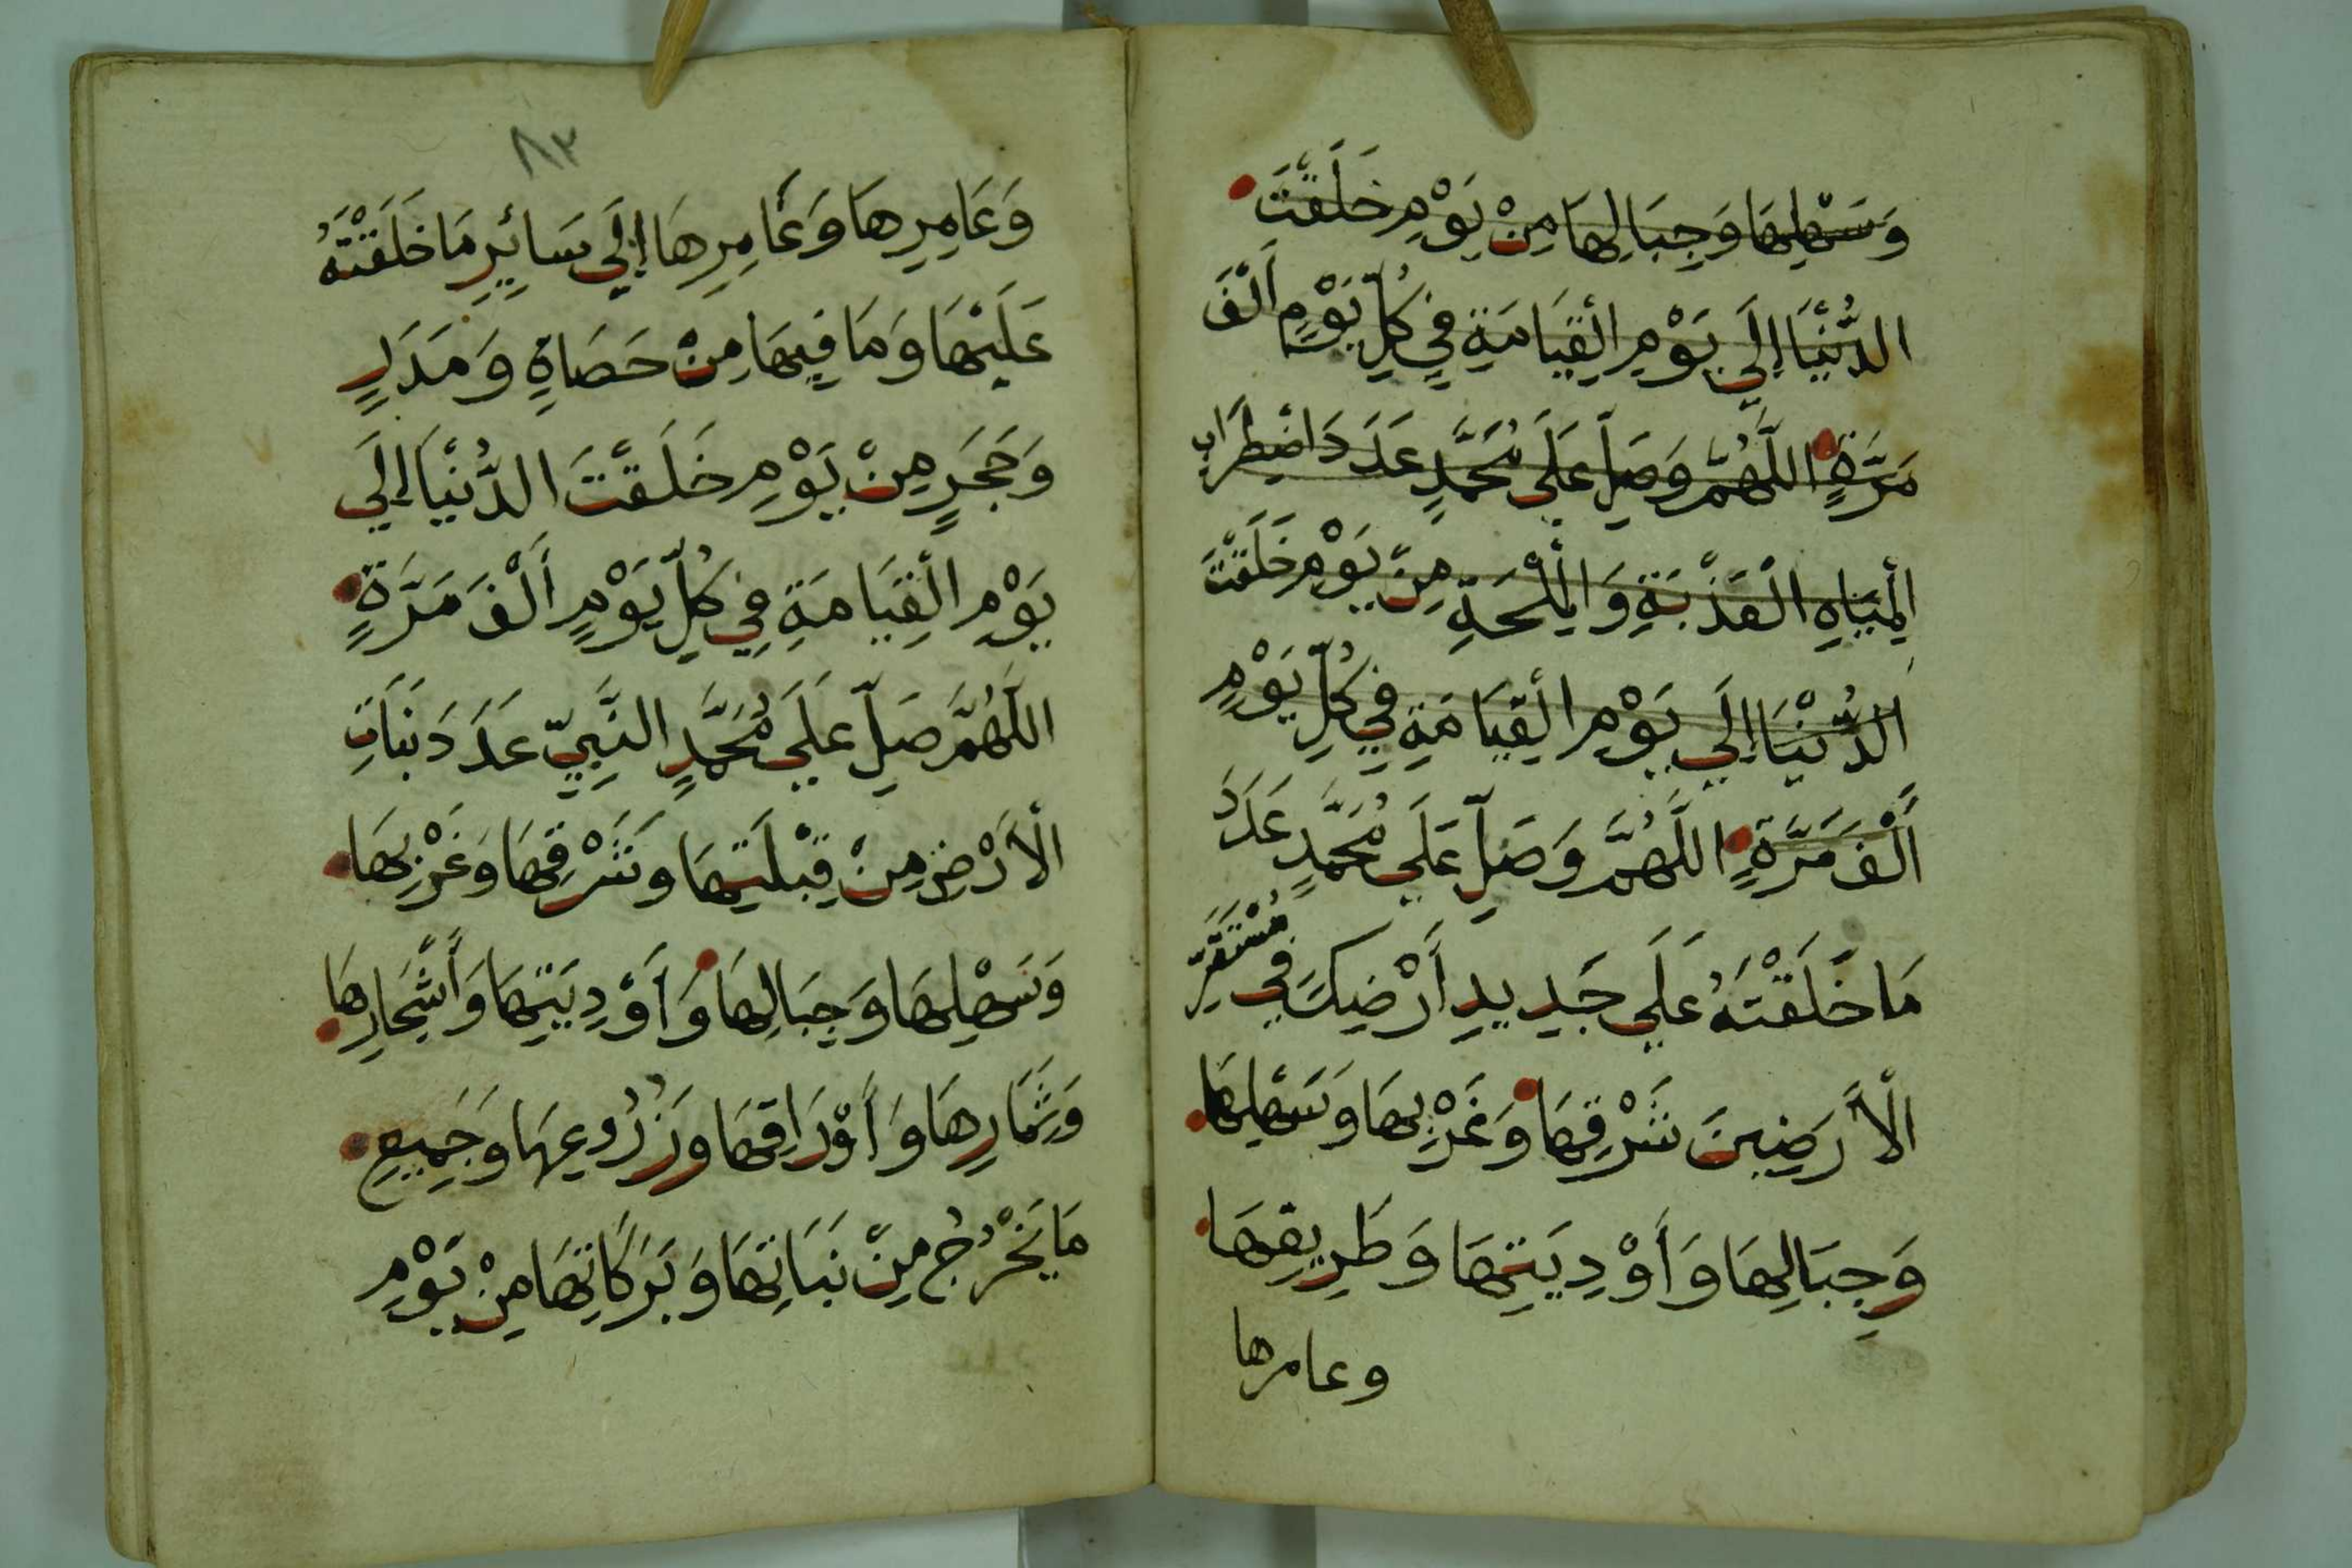 وَسَهْلِهَا وَجِبَالِهَا مِنْ يَوْمِ خَلَقْتَ
الدُّنْيَا إِلَى يَوْمِ الْقِيَامَةِ فِي كُلِّ يَوْمٍ أَلْفَ
مَرَّةٍ اللَّهُمَّ وَصَلِّ عَلَى مُحَمَّدٍ عَدَدَ اضْطِرَابِ
الْمِيَاهِ الْعَذْبَةِ وَالْمِلْحَةِ مِنْ يَوْمِ خَلَقْتَ
الدُّنْيَا إِلَى يَوْمِ الْقِيَامَةِ فِي كُلِّ يَوْمٍ
أَلْفَ مَرَّةٍ اللَّهُمَّ وَصَلِّ عَلَى مُحَمَّدٍ عَدَدَ
مَا خَلَقْتَهُ عَلَى جَدِيدِ أَرْضِكَ فِي مُسْتَقَرِّ
الْأَرَضِينَ شَرْقِهَا وَغَرْبِهَا وَسَهْلِهَا
وَجِبَالِهَا وَأَوْدِيَتِهَا وَطَرِيقِهَا
وعامرها
٨٣
وَعَامِرِهَا وَغَامِرِهَا إِلَى سَائِرِ مَا خَلَقْتَهُ
عَلَيْهَا وَمَا فِيهَا مِنْ حَصَاةٍ وَمَدَرٍ
وَحَجَرٍ مِنْ يَوْمِ خَلَقْتَ الدُّنْيَا إِلَى
يَوْمِ الْقِيَامَةِ فِي كُلِّ يَوْمٍ أَلْفَ مَرَّةٍ
اللَّهُمَّ صَلِّ عَلَى مُحَمَّدٍ النَّبِيِّ عَدَدَ نَبَاتِ
الْأَرْضِ مِنْ قِبْلَتِهَا وَشَرْقِهَا وَغَرْبِهَا
وَسَهْلِهَا وَجِبَالِهَا وَأَوْدِيَتِهَا وَأَشْجَارِهَا
وَثِمَارِهَا وَأَوْرَاقِهَا وَزُرُوعِهَا وَجَمِيعِ
مَا يَخْرُجُ مِنْ نَبَاتِهَا وَبَرَكَاتِهَا مِنْ يَوْمِ